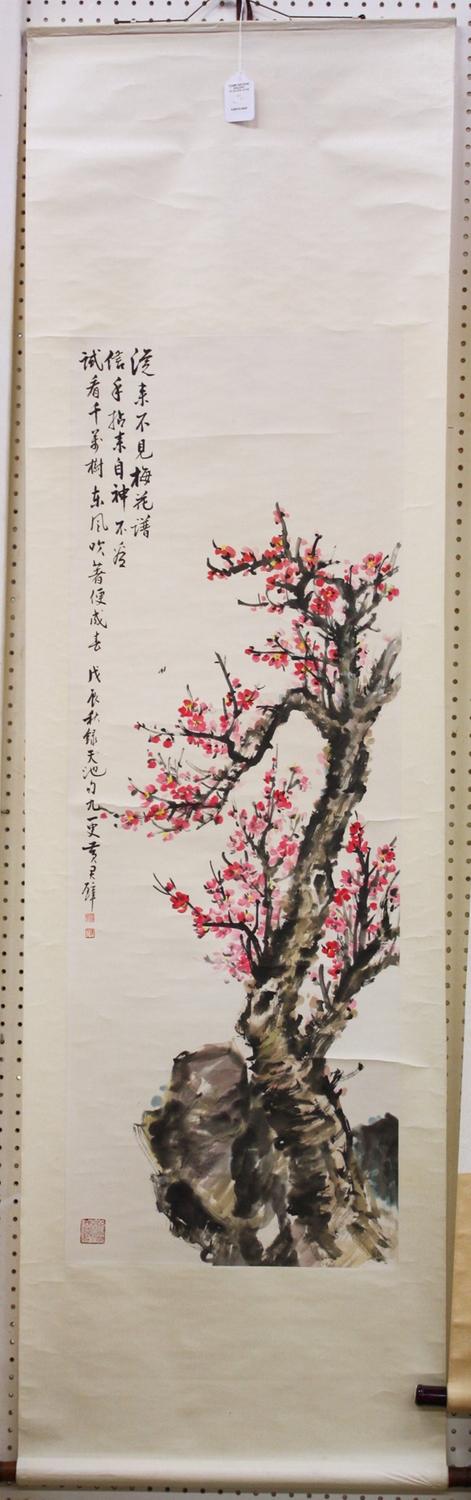 從來不見梅花譜
信手拈來自神不看
試看千萬樹東風吹著便成春 戊辰秋錄天池句九一叟黃君璧